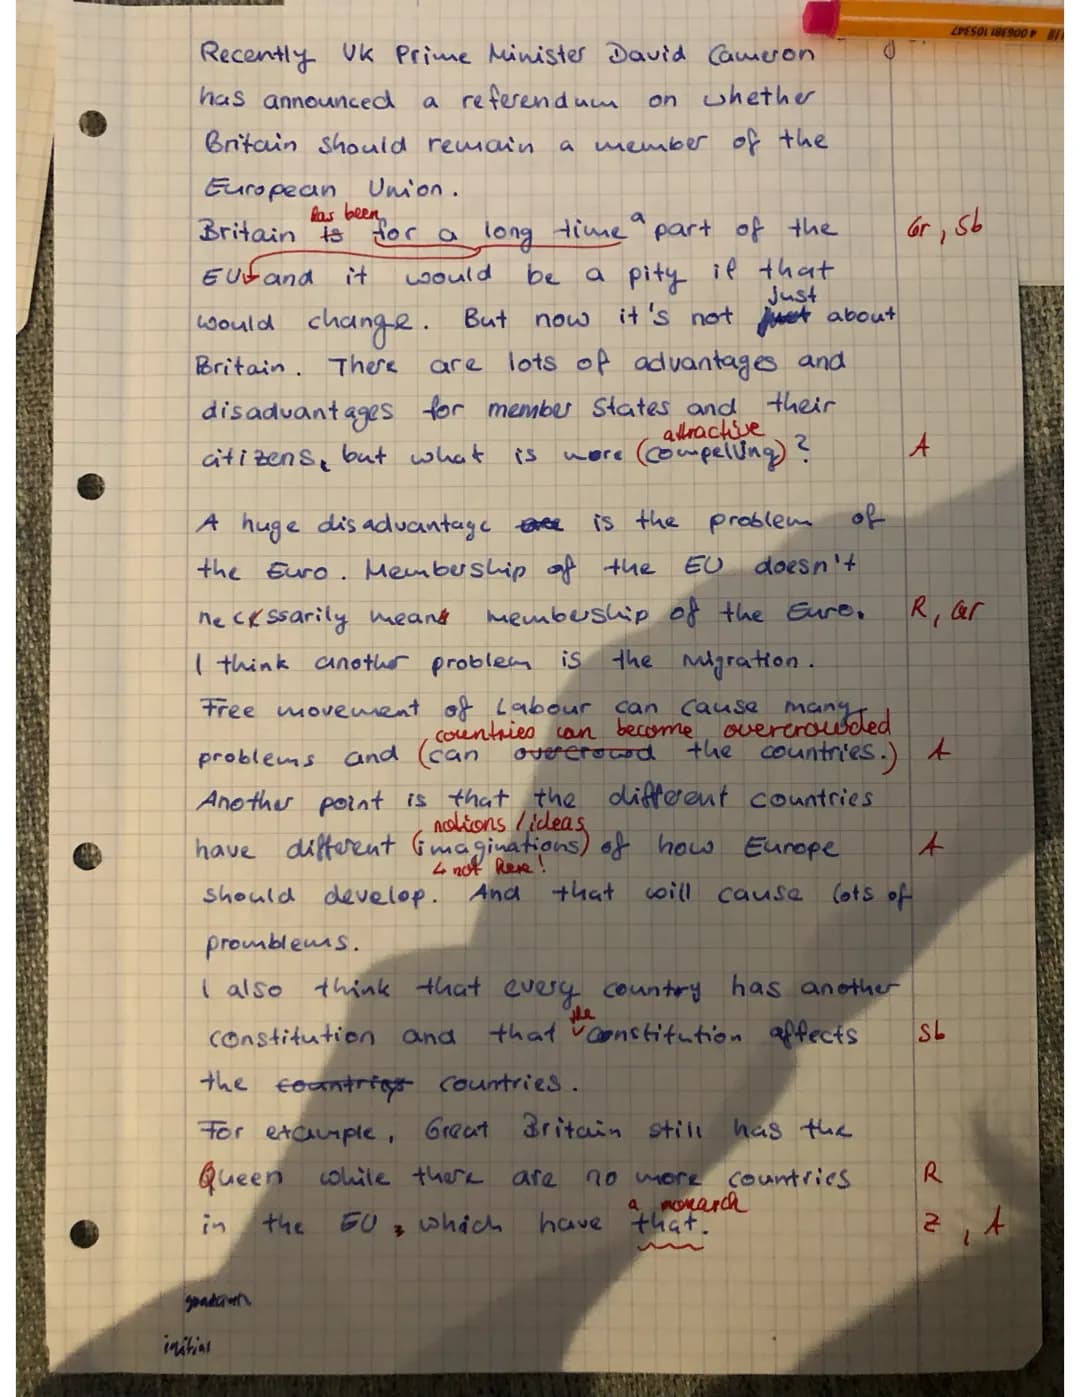 Recently UK Prime Minister David Cameron
has announced a referendum on whether
Britain should remain a member of the
European Union.
has been
Britain is for a long time a part of the Gr, Sb
EU and it would be a pity if that
just
would change. But now it's not just about
Britain. There are lots of advantages and
disadvantages for member States and their
attractive
citizens, but what is more (compelling)? A
A huge disadvantage is the problem of
the Euro. Membership of the EU doesn't
necessarily means membership of the Euro. R, Gr
I think another problem is the Migration.
Free movement of Labour can cause many
countries can become overcrowded
problems and (can overcrowd the countries.) A
Another point is that the different countries
notions / ideas
have different (imaginations) of how Europe A
↳ not here!
should develop. And that will cause lots of
promblems.
I also think that every country has another
the
constitution and that constitution affects Sb
the countries countries.
For example, Great Britain still has the
Queen while there are no more countries R
a monarch
in the EU, which have that. Z, A
initial
4 006381 105347